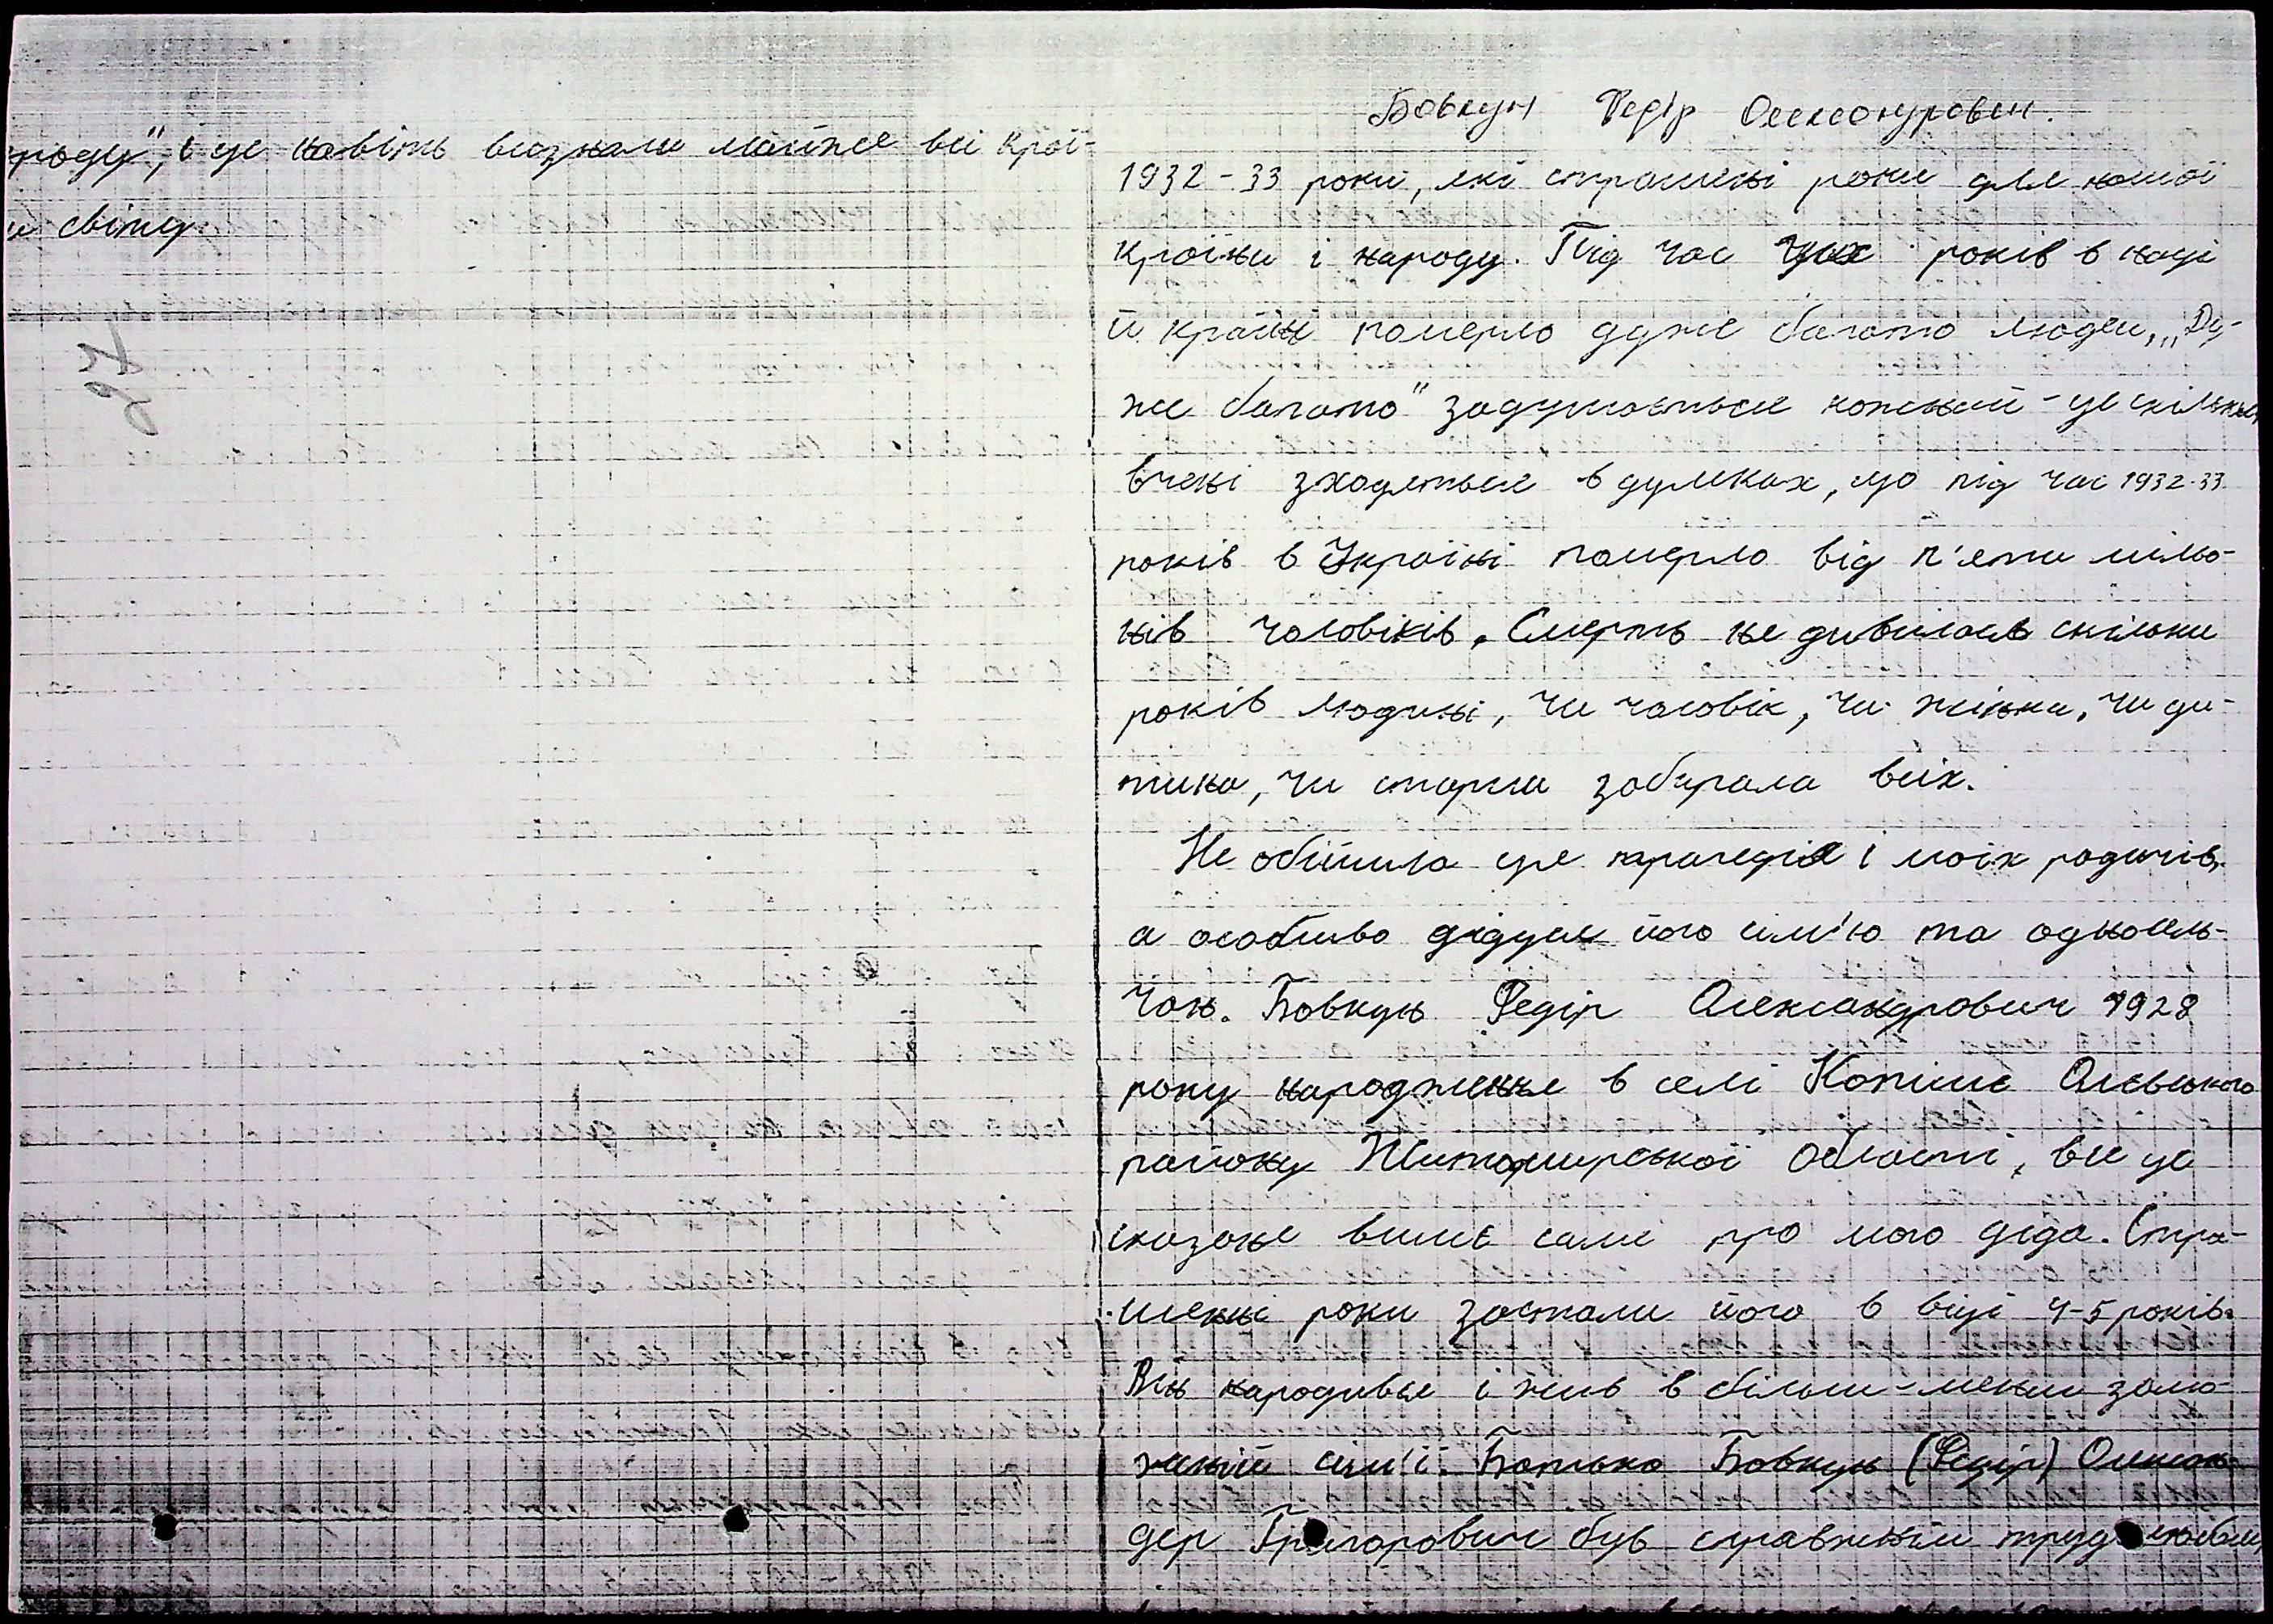 роду", і це навіть визнали майже всі краї-
и світу
27
Бовкун Федір Олександрович.
1932-33 роки, які страшні роки для нашої
країни і народу. Під час цих років в наші
й країні померло дуже багато людей, „Ду-
же багато" задумається кожний - це скільки,
вчені зходяться в думках, що під час 1932-33
років в Україні померло від п'яти мільо-
нів чоловіків. Смерть не дивилась скільки
років людині, чи чоловік, чи жінка, чи ди-
тина, чи старий забирала всіх.
Не обійшла ця трагедія і моїх родичів,
а особливо дідуся його сім'ю та односель-
чан. Бовкун Федір Олександрович 1928
року народження в селі Копище Олевського
району Житомирської області, все це
сказане вище саме про мого діда. Стра-
шенні роки застали його в віці 4-5 років.
Він народився і жив в більш-менш замо-
жній сім'ї. Батько Бовкун (Федір) Олексан-
дер Григорович був справжнім трудолюбом,